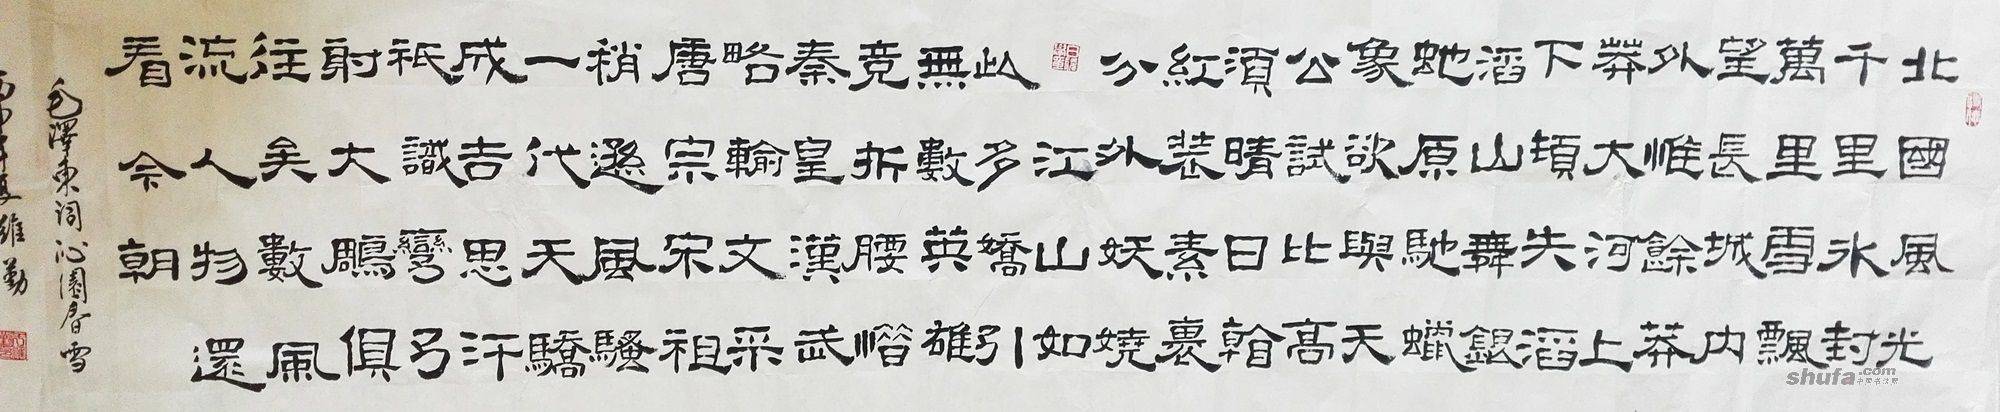 北國風光
千里冰封
萬里雪飄
望長城內
外惟餘莽
莽大河上
下頓失滔
滔山舞銀
蛇原馳蠟
象欲與天
公試比高
須晴日看
紅裝素裹
分外妖嬈
江山如
此多嬌引
無數英雄
竞折腰惜
秦皇漢武
略輸文采
唐宗宋祖
稍遜風騷
一代天驕
成吉思汗
祇識彎弓
射大鵰俱
往矣數風
流人物還
看今朝
毛澤東詞沁園春雪
維勤
shufa.com